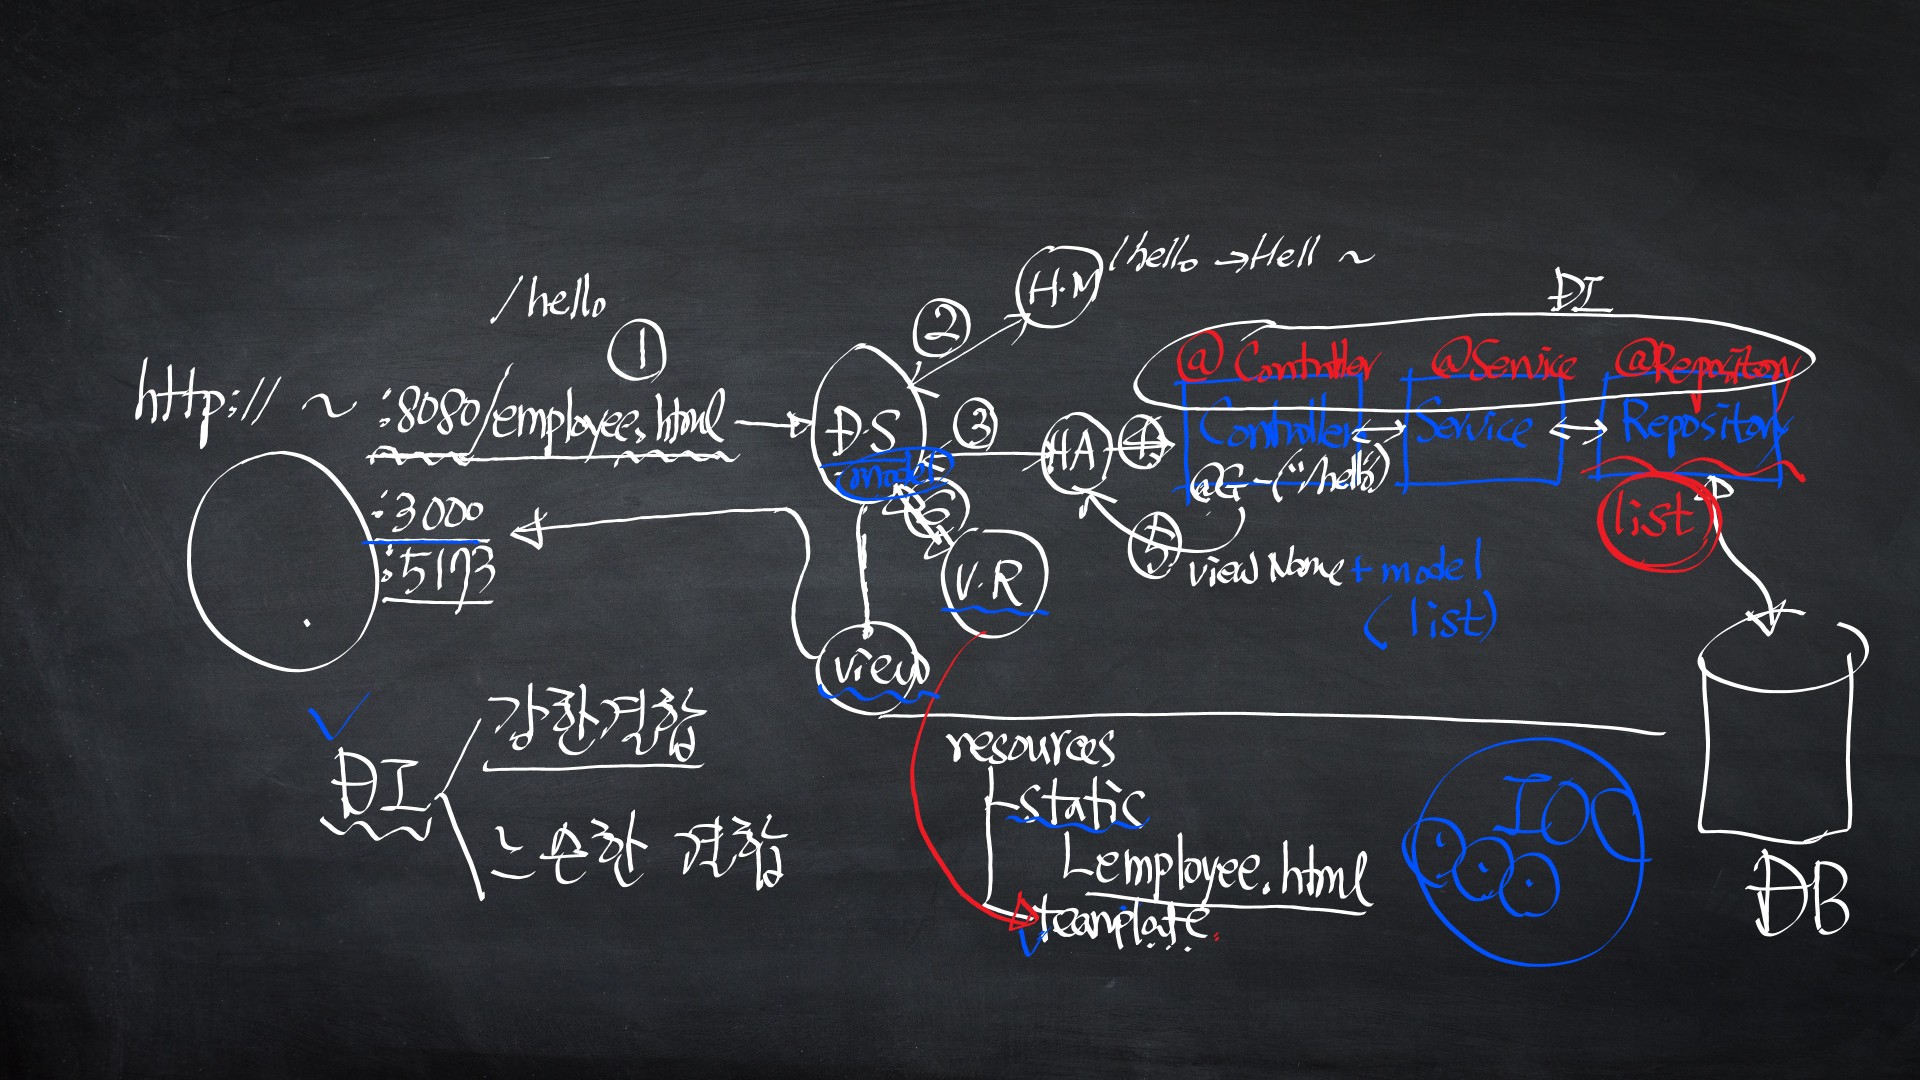 /hello
①
http:// ~ :8080/employee.html
:3000
:5173
D.S
model
②
H.M
/hello → Hell ~
③
HA
④
DI
@Controller @Service @Repository
Controller Service Repository
@G-("/hello")
list
⑤
view Name + model
(list)
⑥
V.R
view
DI
강한결합
느슨한 결합
resources
static
employee.html
teamplate
IOC
DB